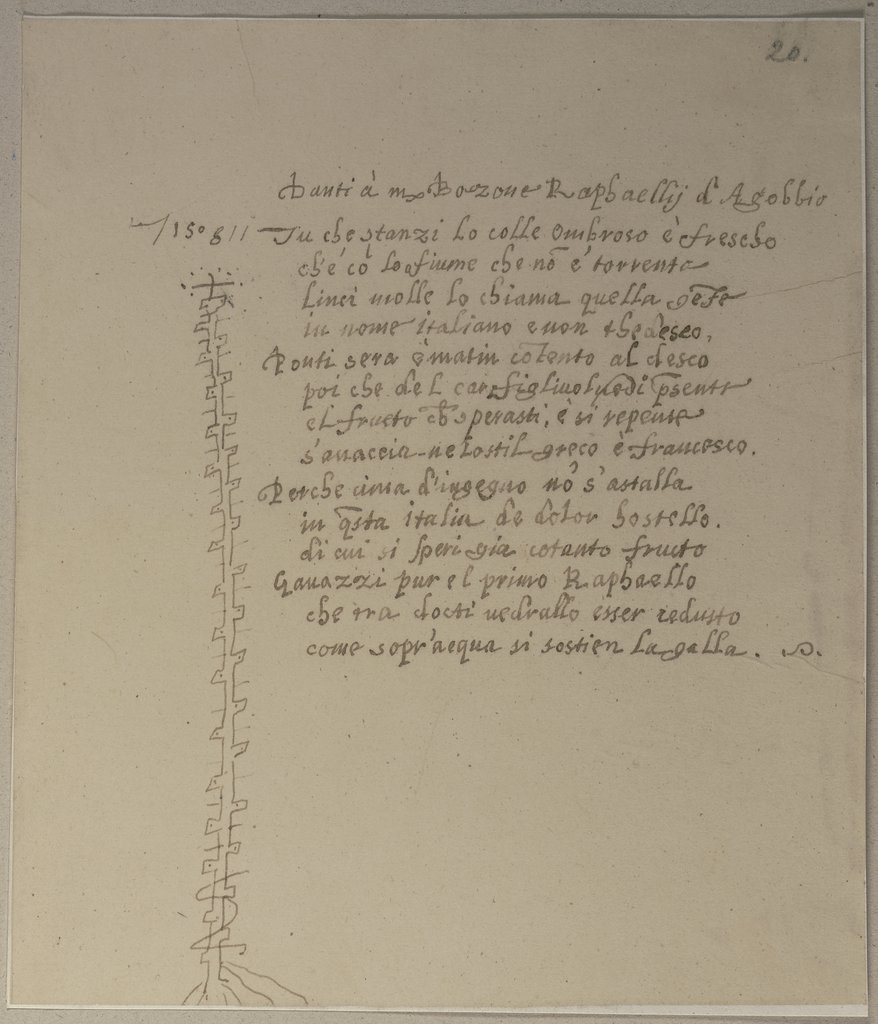 20.
Danti à m Bozone Raphaellij d'Agobbio
Tu che stanzi lo colle ombroso è frescho
ch'é cō lo fiume che nō é torrente
Linci molle lo chiama quella gēte
in nome italiano e non thedesco,
Ponti sera é matin cōtento al desco
poi che del car figliuol vedi p̄sente
el fructo ch̄ sperasti, è si repente
s'auaccia ne lo stil greco è francesco.
Perche cima d'ingegno nō s'astalla
in q̄sta italia de dolor hostello.
di cui si speri gia cotanto fructo
Gauazzi pur el primo Raphaello
che tra docti vedrallo esser redutto
come sopr'acqua si sostien la galla.